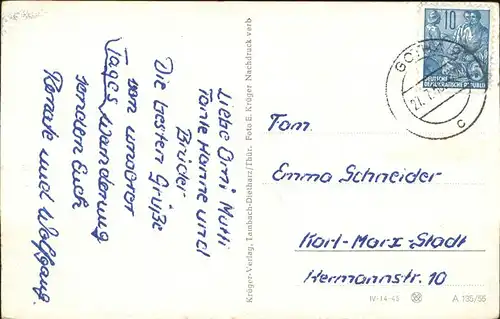 Liebe Omi Mutti
Tante Hanne und
Brüder
Die besten Grüße
von unserer
Tages wanderung
senden Euch
Renate und Wolfgang.
Krüger-Verlag, Tambach-Dietharz/Thür. Foto E. Krüger Nachdruck verb
10
DEUTSCHE
DEMOKRATISCHE REPUBLIK
21.7.
c
Fam.
Emma Schneider
Karl-Marx-Stadt
Hermannstr. 10
IV-14-45
A 135/55